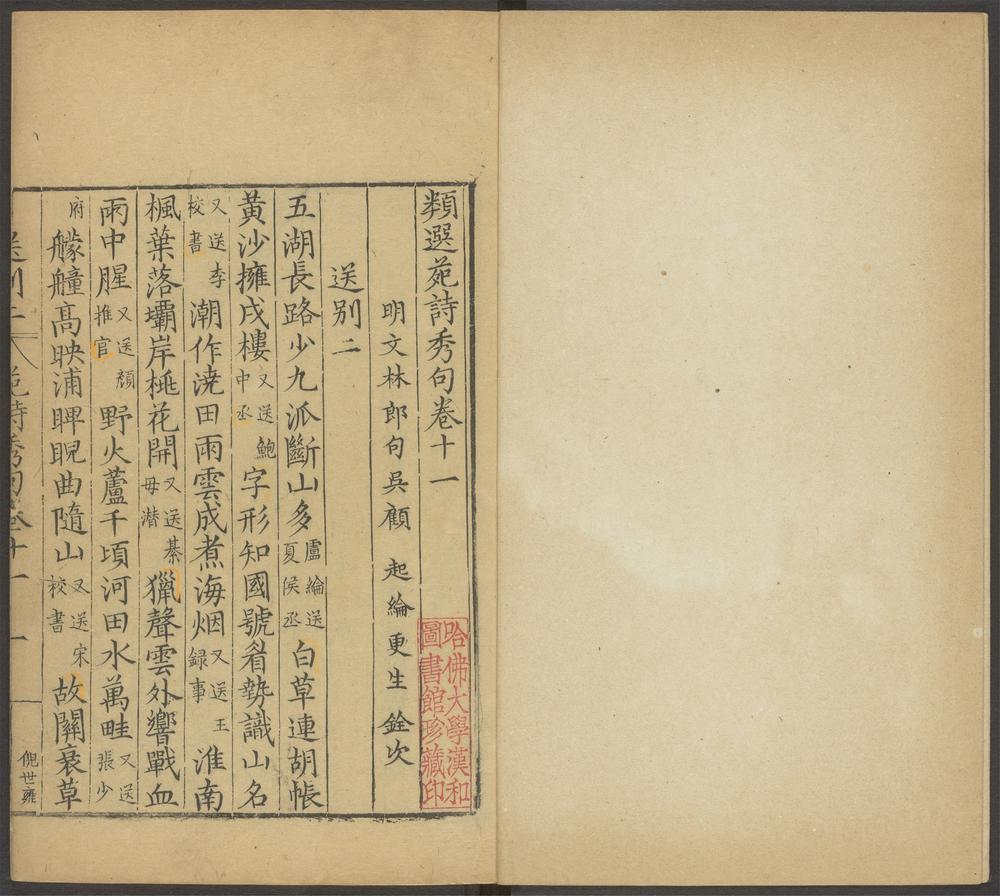 類選苑詩秀句卷十一
哈佛大學漢和
圖書館珍藏印
明文林郎句吳顧 起綸更生 銓次
送别二
五湖長路少九派斷山多盧綸送夏侯丞白草連胡帳
黃沙擁戍樓又送鮑中丞字形知國號眉勢識山名
又送李校書潮作澆田雨雲成煮海烟又送王録事淮南
楓葉落壩岸桃花開又送綦毋潜獵聲雲外響戰血
雨中腥又送顏推官野火蘆千頃河田水萬畦又送張少
府艨艟高映浦睥睨曲隨山又送宋校書故關衰草
送别二 苑詩秀句卷十一 一 倪世雍